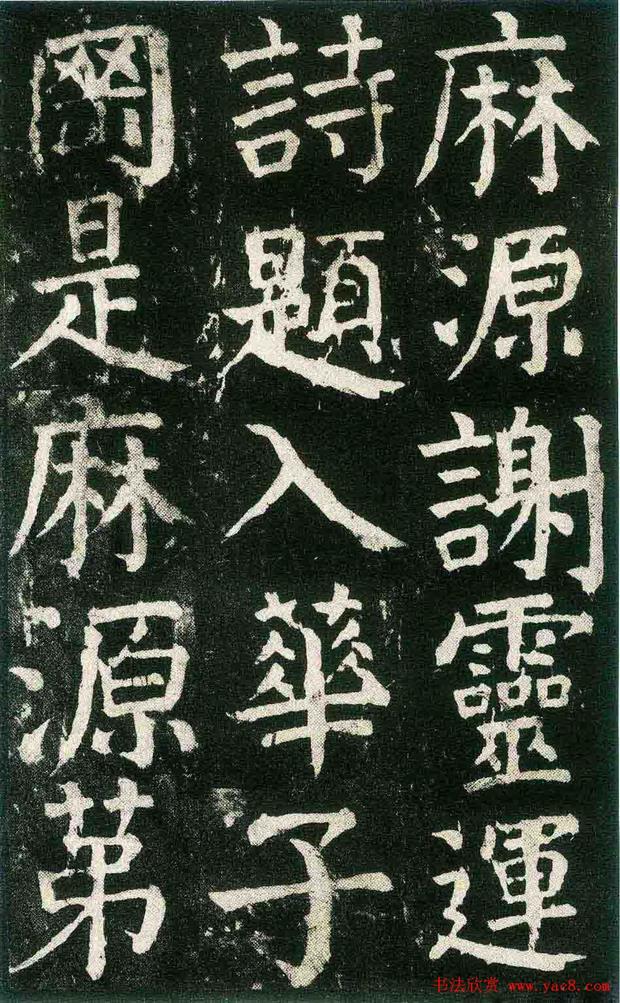 麻源謝靈運
詩題入華子
罡是麻源苐
书法欣赏 www.yac8.com